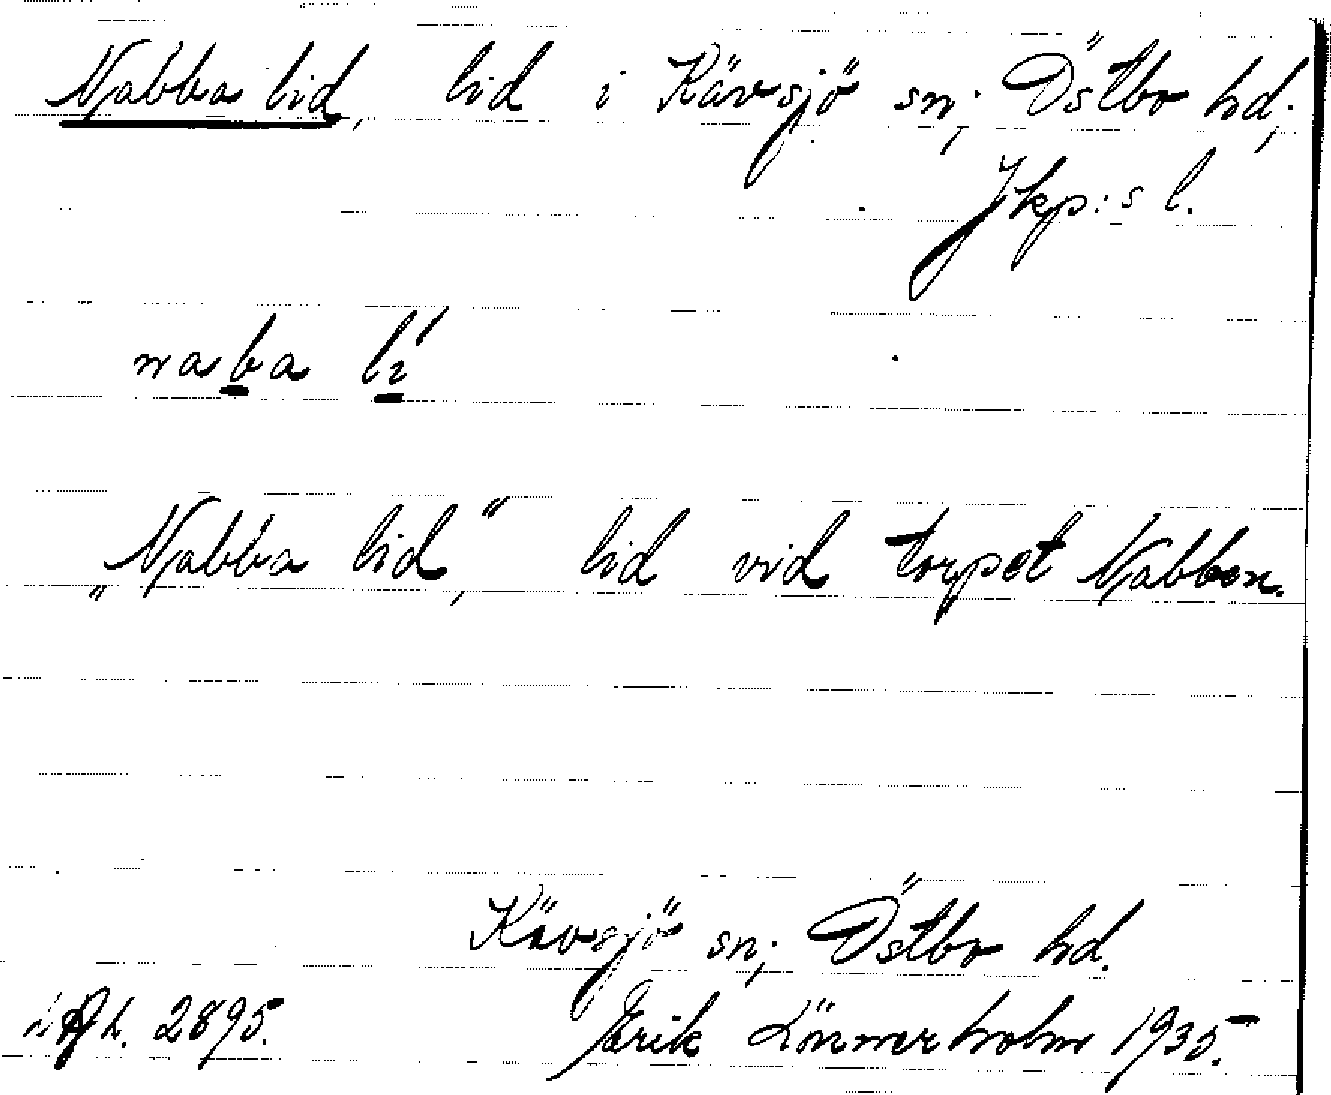 Nabba lid, lid i Kävsjö sn; Östbo hd;
Jkp:s l.
naba li'
„Nabba lid,“ lid vid torpet Nabben.
Kävsjö sn; Östbo hd.
2895. Erik Lönnerholm 1935.